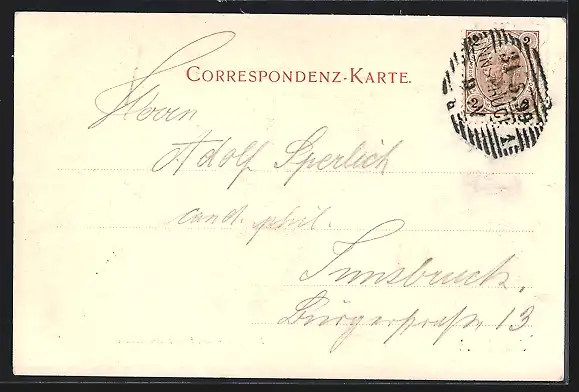 CORRESPONDENZ-KARTE.
2 2
INNSBRUCK 1
31.5.99
Herrn
Adolf Sperlich
cand. phil.
Innsbruck.
Bürgerstraße 13